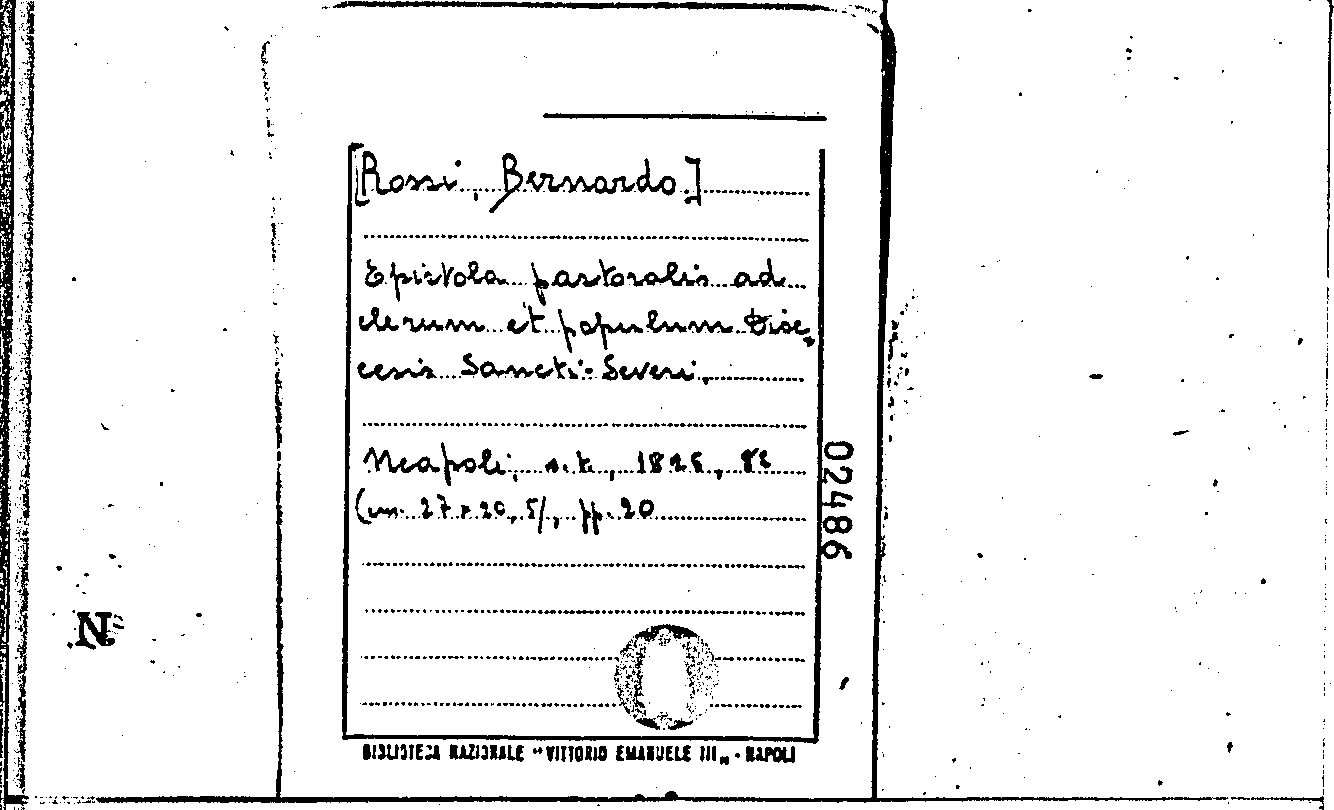 [Rossi, Bernardo.]
Epistola pastoralis ad
clerum et populum Dioe„
cesis Sancti-Severi.
Neapoli, s.t., 1826, 8º
(cm. 27 x 20,5/, pp. 20
02486
N
BIBLIOTECA NAZIONALE “VITTORIO EMANUELE III„ - NAPOLI